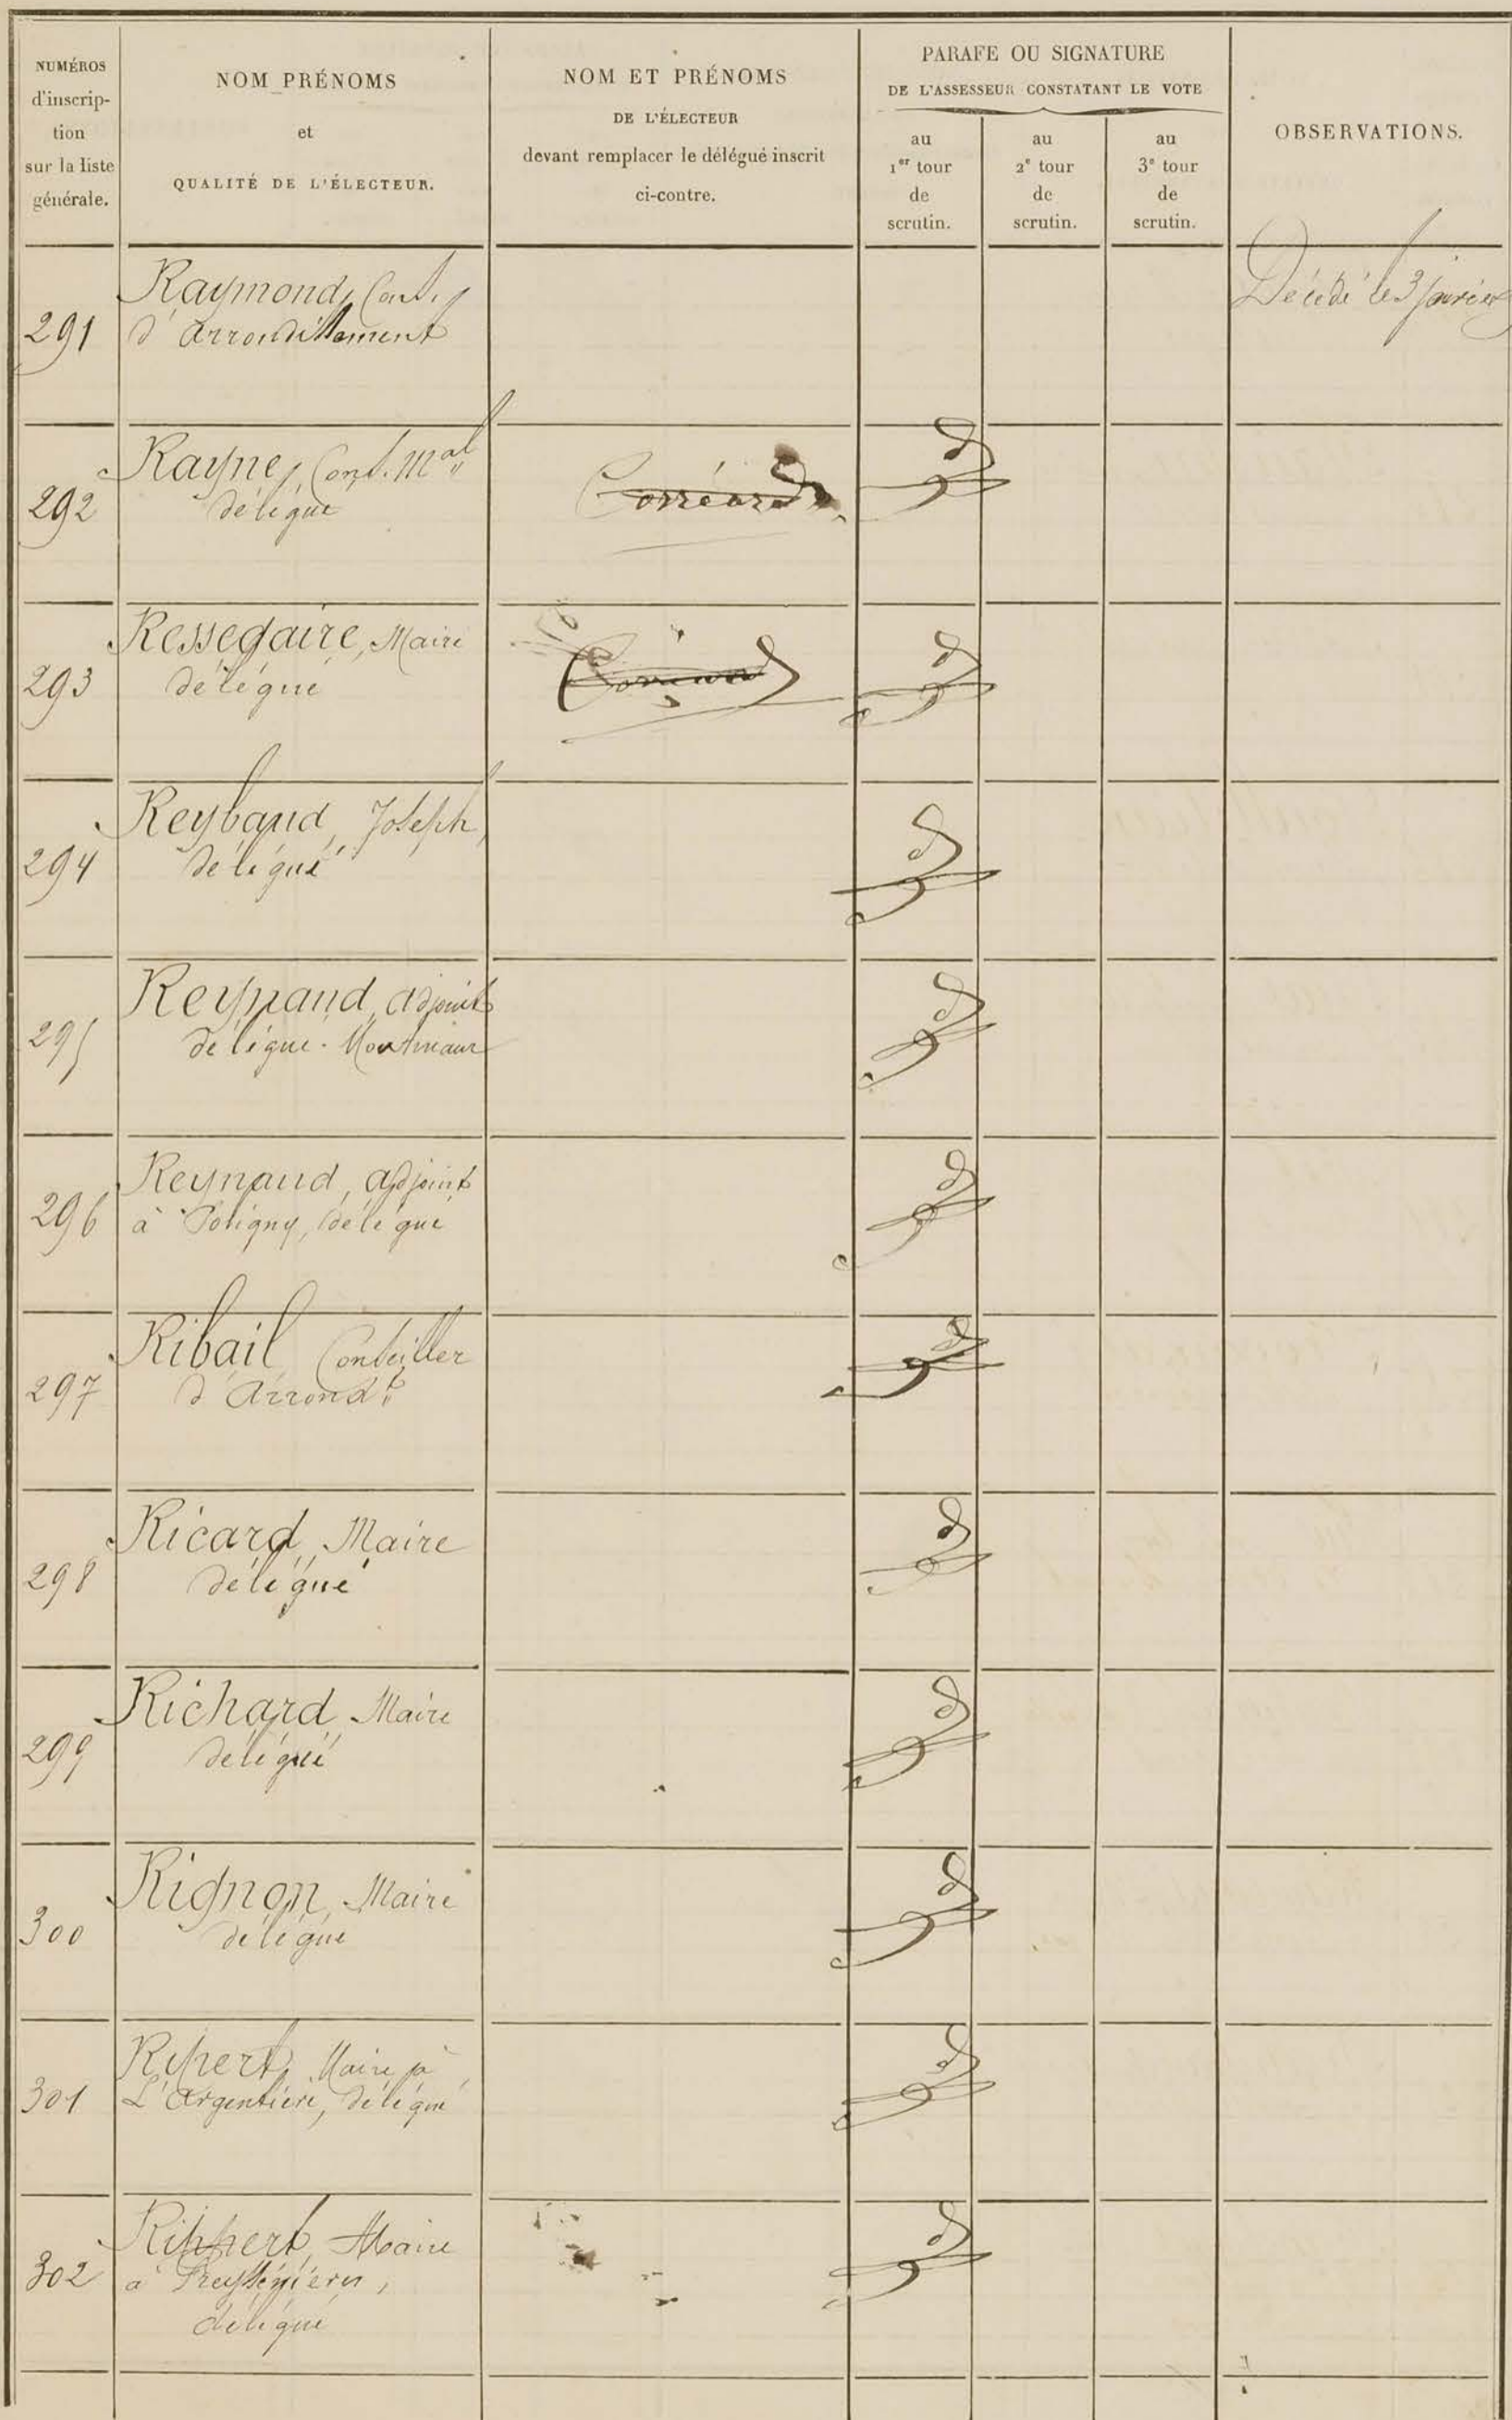 NUMÉROS
d'inscrip-
tion
sur la liste
générale.
NOM PRÉNOMS
et
QUALITÉ DE L'ÉLECTEUR.
NOM ET PRÉNOMS
DE L'ÉLECTEUR
devant remplacer le délégué inscrit
ci-contre.
PARAFE OU SIGNATURE
DE L'ASSESSEUR CONSTATANT LE VOTE
au
1er tour
de
scrutin.
au
2e tour
de
scrutin.
au
3e tour
de
scrutin.
OBSERVATIONS.
291
Raymond, Cons.
d'Arrondissement
Décédé le 3 janvier
292
Rayne, Cons. Mal
délégué
Corréard
293
Ressegaire, Maire
délégué
Corréard
294
Reybaud, Joseph,
délégué
295
Reynaud, adjoint
délégué.
296
Reynaud, adjoint
à Poligny, délégué
297
Ribail Conseiller
d'Arrondt
298
Ricard, Maire
délégué
299
Richard, Maire
délégué
300
Rignon, Maire
délégué
301
Ripert, Maire à
L'Argentière, délégué
302
Rippert, Maire
à Freyssinières,
délégué